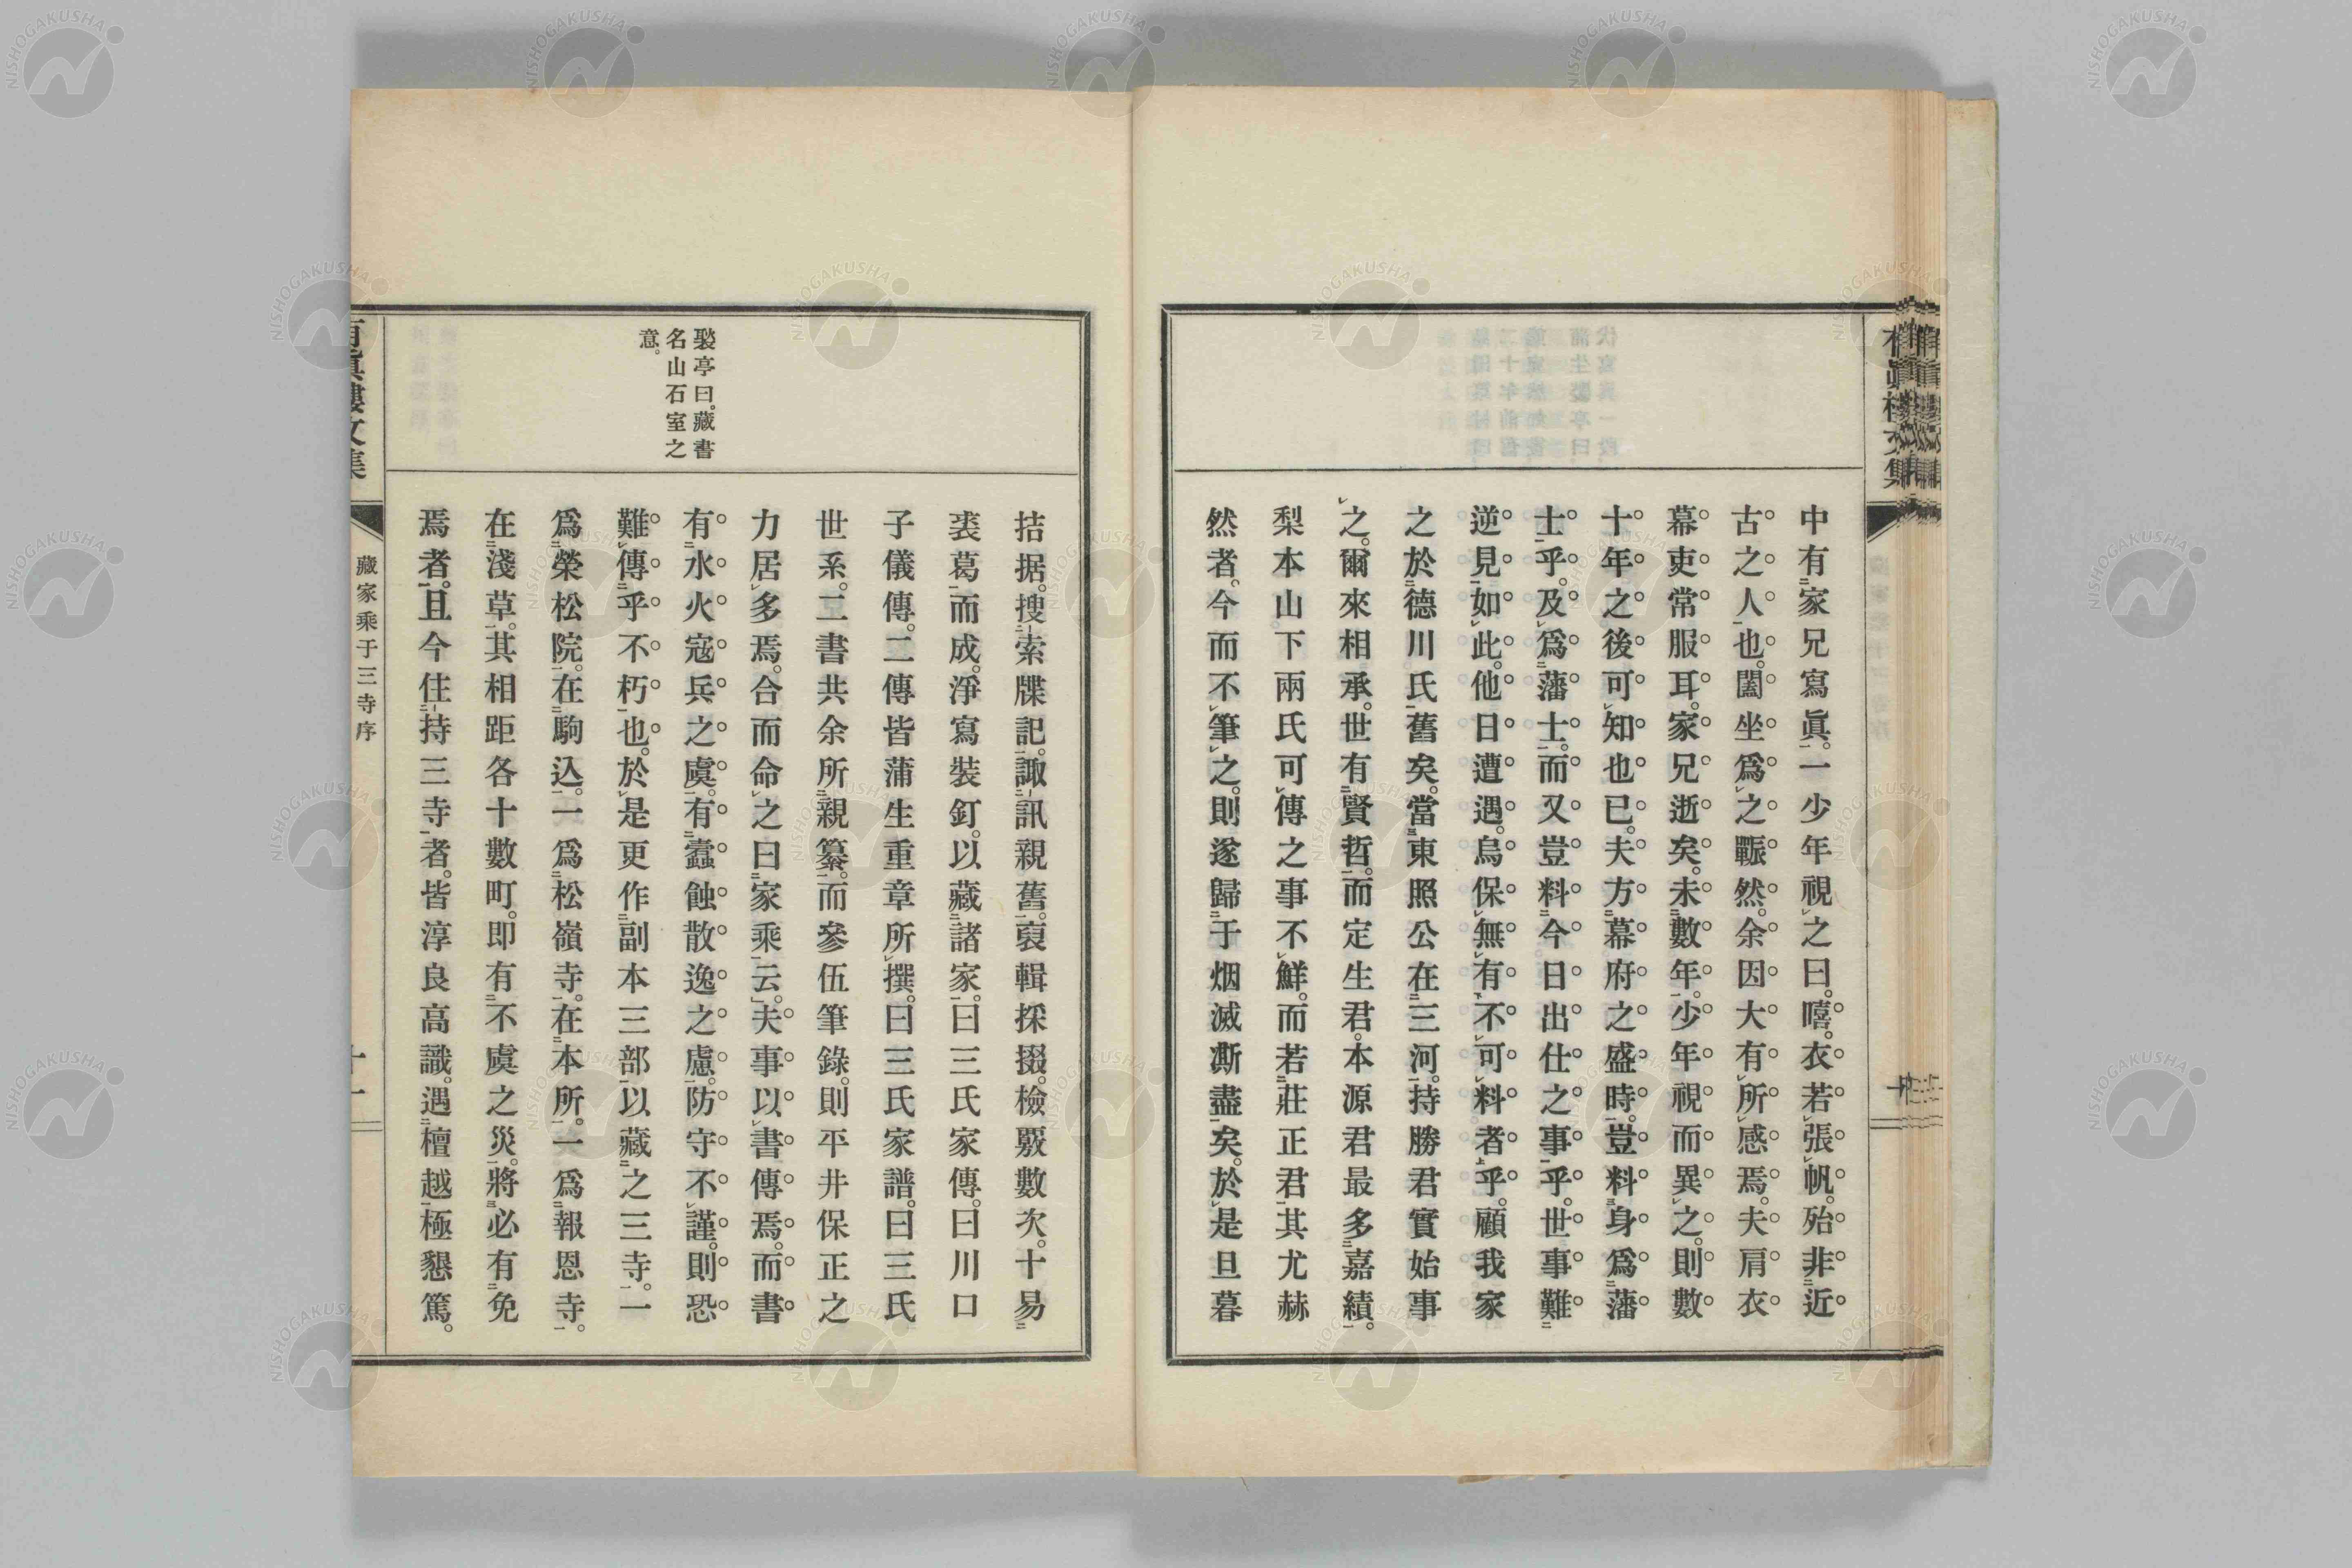 中有家兄寫眞。一少年視之曰。嘻。衣若張帆。殆非近
古之人也。闔坐爲之囅然。余因大有所感焉。夫肩衣
幕吏常服耳。家兄逝矣。未數年。少年視而異之。則數
十年之後可知也已。夫方幕府之盛時。豈料身爲藩
士乎。及爲藩士。而又豈料今日出仕之事乎。世事難
逆見如此。他日遭遇。烏保無有不可料者乎。顧我家
之於德川氏舊矣。當東照公在三河。持勝君實始事
之。爾來相承。世有賢哲。而定生君。本源君最多嘉績。
梨本山下兩氏可傳之事不鮮。而若莊正君其尤赫
然者。今而不筆之。則遂歸于烟滅澌盡矣。於是旦暮
拮据。搜索牒記。諏訊親舊。裒輯採掇。檢覈數次。十易
裘葛而成。淨寫裝釘。以藏諸家。曰三氏家傳。曰川口
子儀傳。二傳皆蒲生重章所撰。曰三氏家譜。曰三氏
世系。二書共余所親纂。而參伍筆錄。則平井保正之
力居多焉。合而命之曰家乘云。夫事以書傳焉。而書
有水火寇兵之虞。有蠹蝕散逸之慮。防守不謹。則恐
難傳乎不朽也。於是更作副本三部以藏之三寺。一
爲榮松院。在駒込。一爲松嶺寺。在本所。一爲報恩寺。
在淺草。其相距各十數町。即有不虞之災。將必有免
焉者。且今住持三寺者。皆淳良高識。遇檀越極懇篤。
褧亭曰。藏書
名山石室之
意。
藏家乘于三寺序
十一